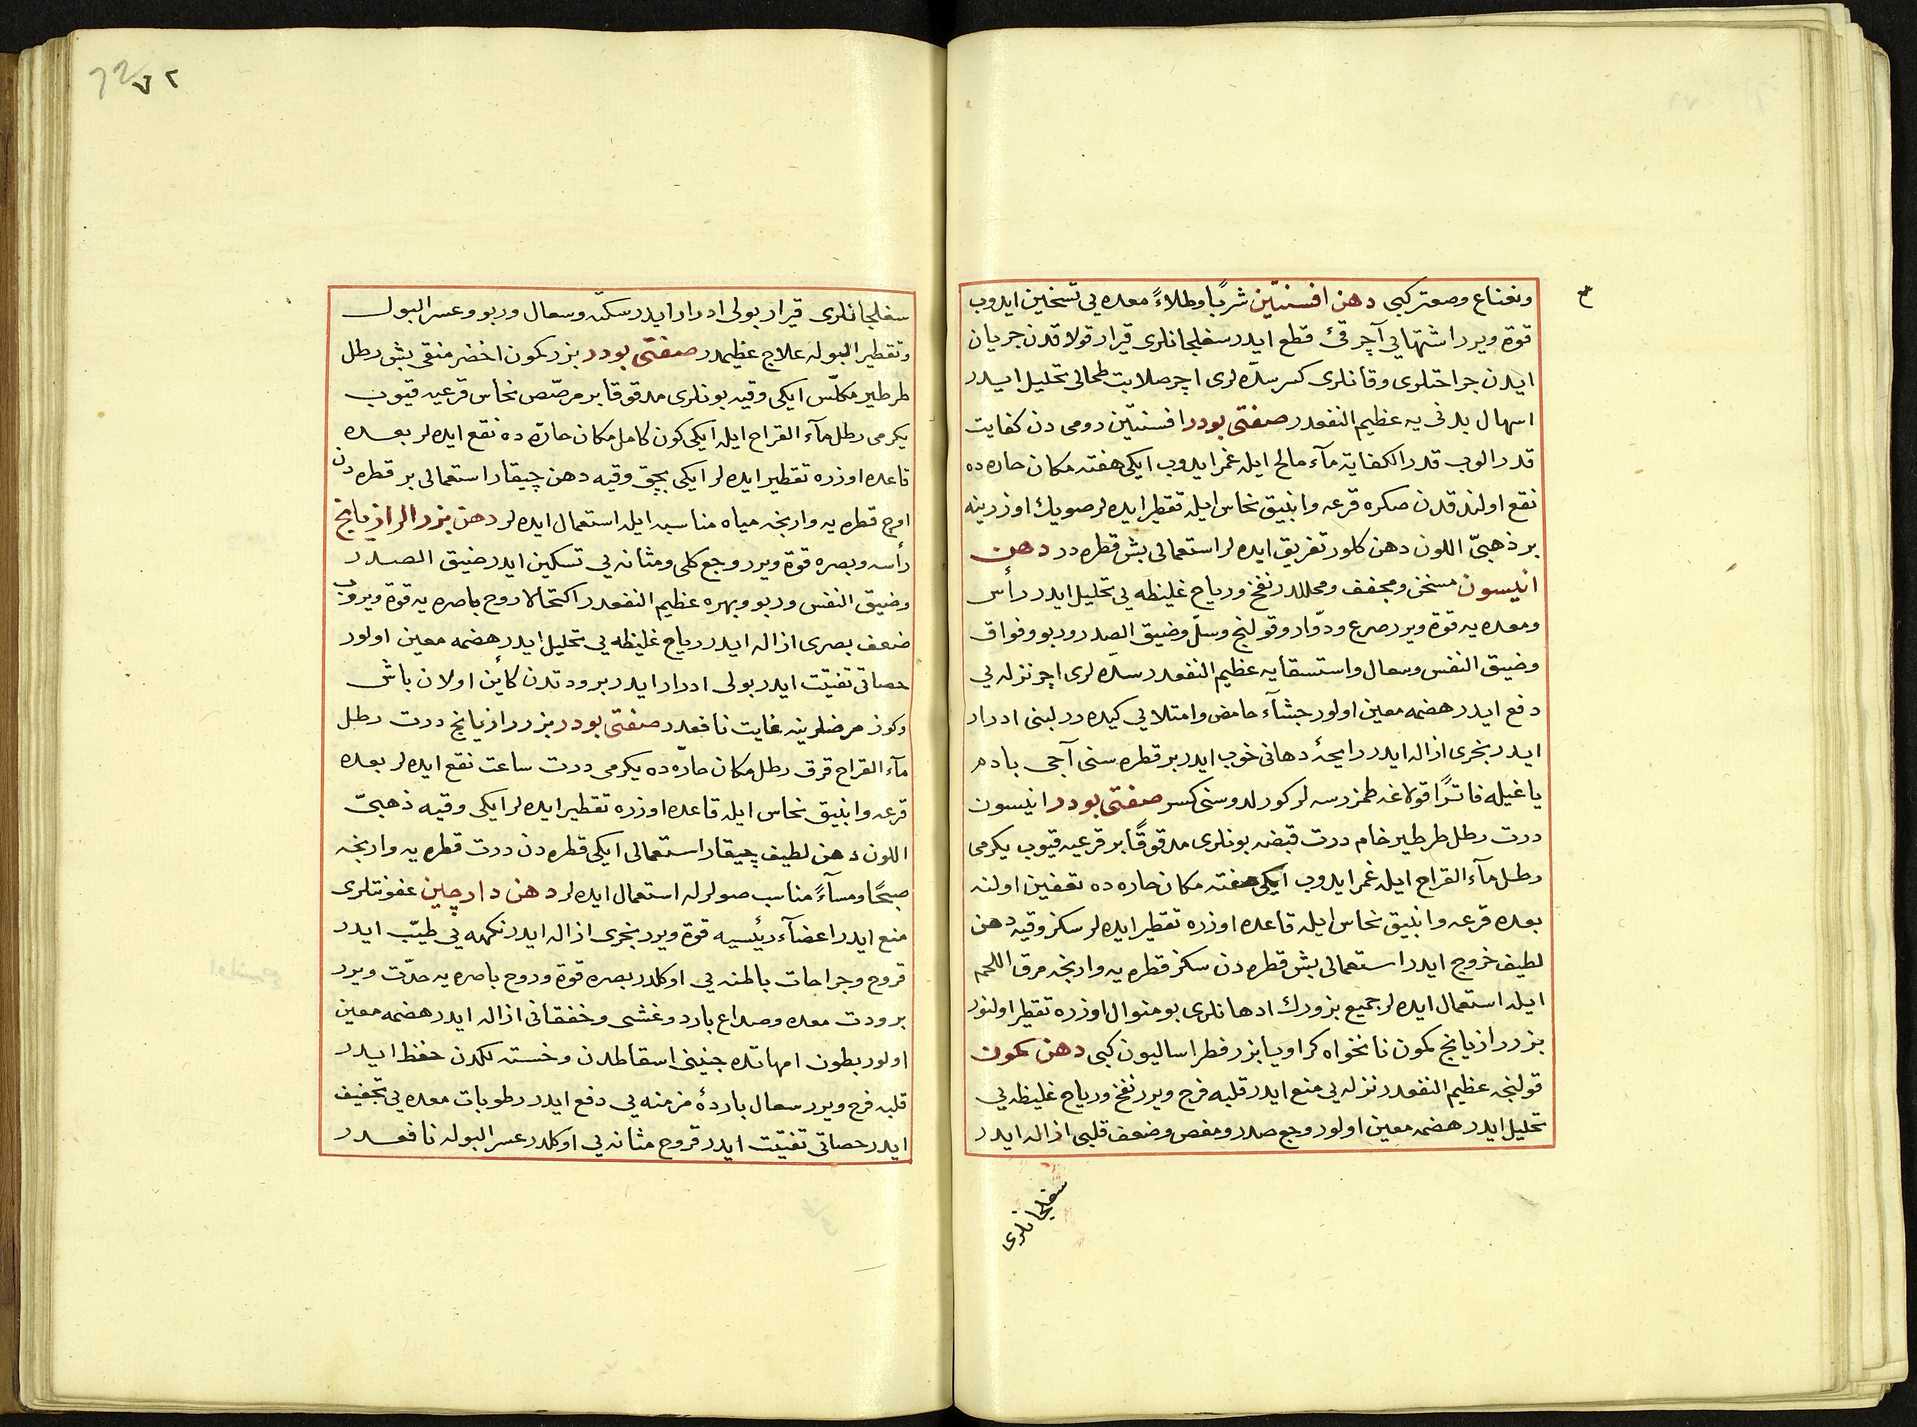 ونعناع وصعتر كبى دهن افسنتين شربًا وطلاءً معده يى تسخين ايدوب
قوة ويرر اشتهايى آچر قئ قطع ايدر سفلجانلرى قيرار قولاقدن جريان
ايدن جراحتلرى وقانلرى كسر سدّه لرى اچر صلابت طحالى تحليل ايدر
اسهال بدنى يه عظيم النفعدر صفتى بودر افسنتين رومى دن كفايت
قدر الوب قدر الكفاية مآء مالح ايله غمر ايدوب ايكى هفته مكان حاره ده
نقع اولندقدن صكره قرعه وانبيق نحاس ايله تقطير ايده لر صويك اوزرينه
بر ذهبىّ اللون دهن كلور تفريق ايده لر استعمالى بش قطره در دهن
انيسون مسخن ومجفف ومحللدر نفخ ورياح غليظه يى تحليل ايدر رأس
ومعده يه قوة ويرر صرع ودوار وقولنج وسلّ وضيق الصدر وربو وفواق
وضيق النفس وسعال واستسقايه عظيم النفعدر سدّه لرى اچر نزله يى
دفع ايدر هضمه معين اولور جشآء حامض وامتلايى كيده رر لبنى ادرار
ايدر بخرى ازاله ايدر رايحۀ دهانى خوب ايدر بر قطره سنى آجى بادم
ياغيله فاترًا قولاغه طمزرسه لر كورلدوسنى كسر صفتى بودر انيسون
درت رطل طرطير خام درت قبضه بونلرى مدقوقًا بر قرعيه قيوب يكرمى
رطل مآء القراح ايله غمر ايدوب ايكى هفته مكان حاره ده تعفين اولنه
بعده قرعه وانبيق نحاس ايله قاعده اوزره تقطير ايده لر سكز وقيه دهن
لطيف خروج ايدر استعمالى بش قطره دن سكز قطره يه وارنجه مرق اللحم
ايله استعمال ايده لر جميع بزورك ادهانلرى بو منوال اوزره تقطير اولنور
بزر رازيانج كمون نانخواه كراويا بزر فطراساليون كبى دهن كمون
قولنجه عظيم النفعدر نزله يى منع ايدر قلبه فرح ويرر نفخ ورياح غليظه يى
تحليل ايدر هضمه معين اولور وجع صدر ومغص وضعف قلبى ازاله ايدر
سفلجانلرى
72
٧٢
سفلجانلرى قيرار بولى ادرار ايدر سكته وسعال وربو وعسر البول
وتقطير البوله علاج عظيمدر صفتى بودر بزر كمون اخضر منقى بش رطل
طرطير مكلّس ايكى وقيه بونلرى مدقوقا بر مرصّص نحاس قرعيه قيوب
يكرمى رطل مآء القراح ايله ايكى كون كامل مكان حارّه ده نقع ايده لر بعده
قاعده اوزره تقطير ايده لر ايكى بچق وقيه دهن چيقار استعمالى بر قطره دن
اوچ قطره يه وارنجه مياه مناسبه ايله استعمال ايده لر دهن بزر الرازيانج
رأسه وبصره قوة ويرر وجع كلى ومثانه يى تسكين ايدر ضيق الصدر
وضيق النفس وربو وبهره عظيم النفعدر اكتحالا روح باصره يه قوة ويروب
ضعف بصرى ازاله ايدر رياح غليظه يى تحليل ايدر هضمه معين اولور
حصاتى تفتيت ايدر بولى ادرار ايدر برودتدن كائن اولان باش
وكوز مرضلرينه غايت نافعدر صفتى بودر بزر رازيانج درت رطل
مآء القراح قرق رطل مكان حارّه ده يكرمى درت ساعت نقع ايده لر بعده
قرعه وانبيق نحاس ايله قاعده اوزره تقطير ايده لر ايكى وقيه ذهبىّ
اللون دهن لطيف چيقار استعمالى ايكى قطره دن درت قطره يه وارنجه
صبحًا ومسآءً مناسب صولرله استعمال ايده لر دهن دارچين عفونتلرى
منع ايدر اعضآء رئيسيه قوة ويرر بخرى ازاله ايدر نكهه يى طيّب ايدر
قروح وجراحات باطنه يى اوكلدر بصره قوة وروح باصره يه حدّت ويرر
برودت معده وصداع بارد وغشى وخفقانى ازاله ايدر هضمه معين
اولور بطون امهاتده جنينى اسقاطدن وخسته لكدن حفظ ايدر
قلبه فرح ويرر سعال باردۀ مزمنه يى دفع ايدر رطوبات معده يى تجفيف
ايدر حصاتى تفتيت ايدر قروح مثانه يى اوكلدر عسر البوله نافعدر